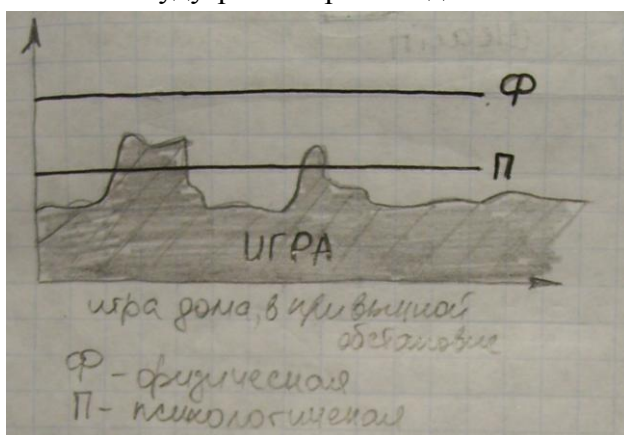 Ф
П
ИГРА
игра дома, в привычной
обстановке
Ф - физическая
П - психологическая